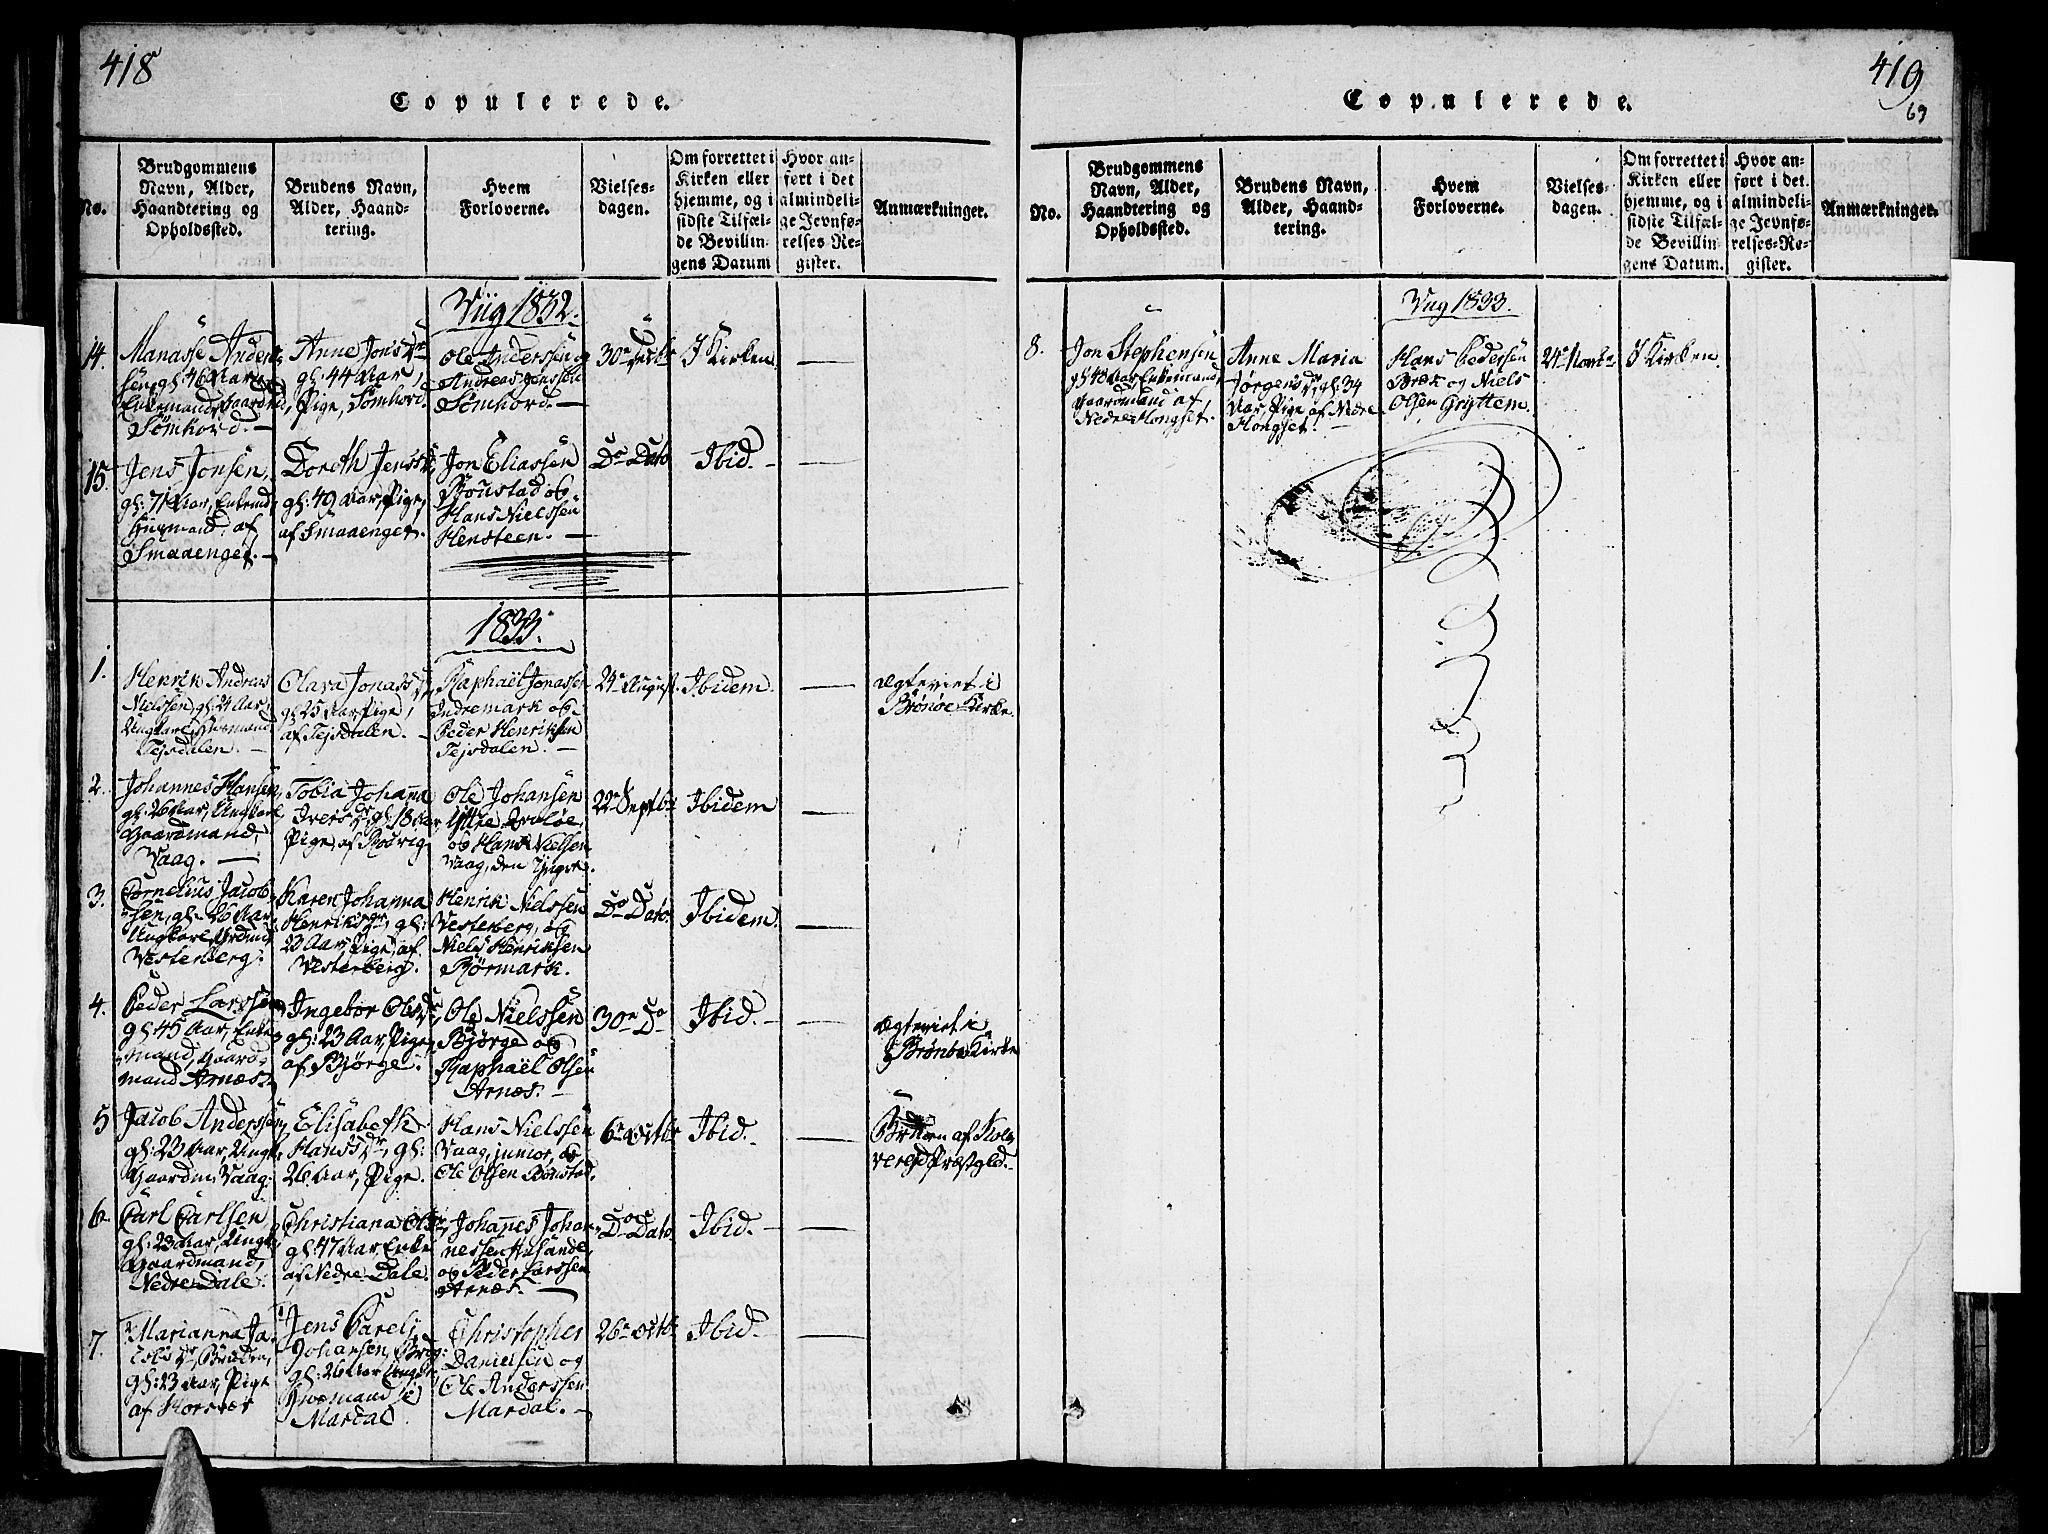 418
Copulerede.
No.
Brudgommens
Navn, Alder,
Haandtering og
Opholdssted.
Brudens Navn,
Alder, Haand-
tering.
Hvem
Forloverne.
Vielses-
dagen.
Om forrettet i
Kirken eller
hjemme, og i
sidste Tilfæl-
de Bevillin-
gens Datum
Hvor an-
ført i det
almindeli-
ge Jevnfø-
relses-Re-
gister.
Anmærkninger.
Viig 1832.
14.
Manasse Anders-
sen, gl: 46 Aar,
Enkemand, Gaardmd,
Sømhord. —
Anne Jonsdr
gl: 44 Aar,
Pige, Sømhord.
Ole Anderssen og
Andreas Jenssen
Sømhord. —
30te
I Kirken
15.
Jens Jonsen,
gl: 71 Aar, Enkemd,
Huusmand, af
Smaaenget. —
Doroth Jensdr
gl: 49 Aar, Pige,
af Smaaenget.
Jon Eliassen
Bonstad og
Hans Nielssen
Hensteen. —
Do Dato
Ibid. —
1833.
1.
Henrik Andreas
Nielssen, gl: 24 Aar,
Ungkarl, Huusmand
Tejsdalen. —
Clara Jonasdr,
gl: 25 Aar, Pige,
af Tejsdalen. —
Raphael Jonassen
Indremark og
Peder Henriksen
Tejsdalen. —
24e August.
Ibidem.
Ægteviet i
Brønøe Kirke.
2.
Johannes Hansen,
gl: 26 Aar, Ungkarl,
Gaardmand,
Vaag. —
Tobia Johanna
Iversdr, gl: 18 Aar,
Pige, af Rodvig
Ole Johansen
Yttre
og Hans Nielsen
Vaag, den Yngre.
22e Septbr
Ibidem
3.
Cornelius Jacob-
sen, gl: 26 Aar,
Ungkarl, Grdmd
Vesterberg.
Karen Johanna
Henriksdr, gl:
23 Aar, Pige, af
Vesterberg.
Henrik Nielssen
Vesterberg, og
Niels Henriksen
Børmark.
Do Dato.
Ibidem.
4.
Peder Larssen
gl: 45 Aar, Enke-
mand, Gaard-
mand Arnæs.
Ingebor Olsdr,
gl: 23 Aar, Pige,
af Bjørge.
Ole Nielssen
Bjørge og
Raphaël Olsen
Arnæs. —
30e Do
Ibid. —
Ægteviet i
Brønøe Kirke
5
Jacob Anderssen,
gl: 23 Aar, Ungk:
Gaardm, Vaag.
Elisabeth
Hansdr, gl:
26 Aar, Pige.
Hans Nielssen
Vaag, junior, og
Ole Olsen Bonstad.
6e Octbr
Ibid. —
Bruden af
Præstgld. —
6.
Carl Carlsen
gl: 23 Aar, Ungk,
Gaardmand,
Nedre Dale.
Christiana Olsdr,
gl: 47 Aar Enke
af Nedre Dale.
Johannes Johan-
nessen Husande,
og Peder Larssen
Arnæs. —
Do Dato
Ibid. —
7.
Marianna Ja-
cobsdr, Bruden,
gl: 23 Aar, Pige
af Horsvær
Jens Pareli
Johansen, Brdg:
gl: 26 Aar Ungk,
Huusmand i
Mardal.
Christopher
Danielsen og
Ole Anderssen
Mardal. —
26e Octbr
Ibid. —
419
63
Copulerede.
No.
Brudgommens
Navn, Alder,
Haandtering og
Opholdssted.
Brudens Navn,
Alder, Haand-
tering.
Hvem
Forloverne.
Vielses-
dagen.
Om forrettet i
Kirken eller
hjemme, og i
sidste Tilfæl-
de Bevillin-
gens Datum.
Hvor an-
ført i det
almindeli-
ge Jevnfø-
relses-Re-
gister.
Anmærkninger.
Viig 1833.
8.
Jon Stephensen
gl: 48 Aar Enkemand,
Gaardmand af
Nedre Hongset.
Anne Maria
Jørgensdr, gl: 34
Aar, Pige af Nedre
Hongset.
Hans Pedersen
Bræk og Niels
Olsen Gryttem.
24e Novbr
I Kirken.